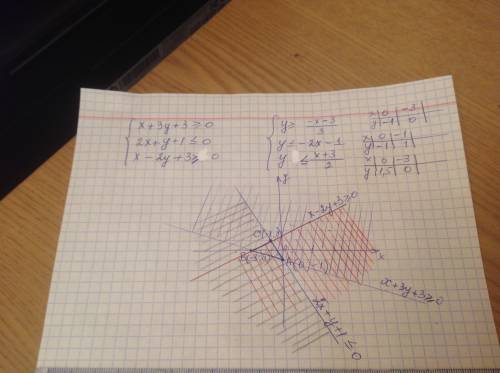 x+3y+3≥0
2x+y+1≤0
x-2y+3≥0
y≥ -x-3/3
y≤-2x-1
y ≤ x+3/2
x | 0 | -3
y | -1 | 0
x | 0 | -1
y | -1 | 1
x | 0 | -3
y | 1,5 | 0
y
x-2y+3≥0
x
x+3y+3≥0
2x+y+1≤0